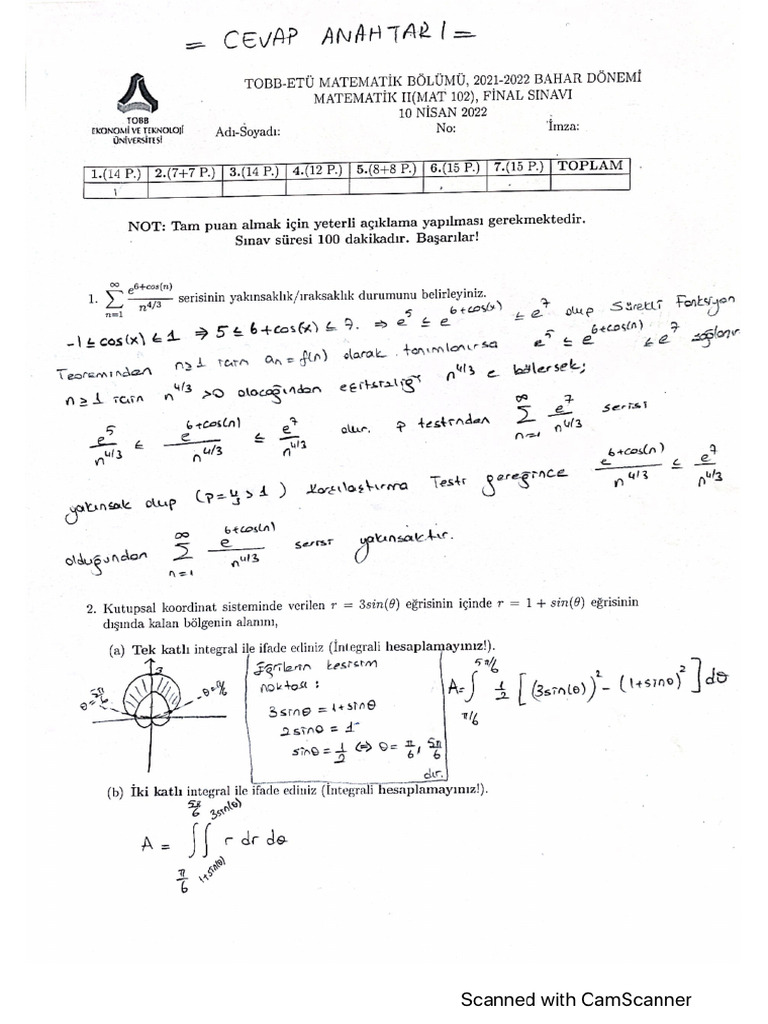 = CEVAP ANAHTARI =
TOBB-ETÜ MATEMATİK BÖLÜMÜ, 2021-2022 BAHAR DÖNEMİ
MATEMATİK II(MAT 102), FİNAL SINAVI
10 NİSAN 2022
TOBB
EKONOMİ VE TEKNOLOJİ
ÜNİVERSİTESİ
Adı-Soyadı: No: İmza:
1.(14 P.) 2.(7+7 P.) 3.(14 P.) 4.(12 P.) 5.(8+8 P.) 6.(15 P.) 7.(15 P.) TOPLAM
NOT: Tam puan almak için yeterli açıklama yapılması gerekmektedir.
Sınav süresi 100 dakikadır. Başarılar!
1. ∑_{n=1}^{∞} e^{6+cos(n)}/n^{4/3} serisinin yakınsaklık/ıraksaklık durumunu belirleyiniz.
-1 ≤ cos(x) ≤ 1 ⇒ 5 ≤ 6+cos(x) ≤ 7. ⇒ e^5 ≤ e^{6+cos(x)} ≤ e^7 olup Sürekli Fonksiyon
Teoreminden n≥1 için a_n = f(n) olarak tanımlanırsa e^5 ≤ e^{6+cos(n)} ≤ e^7 sağlanır
n≥1 için n^{4/3} >0 olacağından eşitsizliği n^{4/3} e bölersek;
e^5/n^{4/3} ≤ e^{6+cos(n)}/n^{4/3} ≤ e^7/n^{4/3} olur. p testinden ∑_{n=1}^{∞} e^7/n^{4/3} serisi
yakınsak olup (p=4/3 > 1) Karşılaştırma Testi gereğince e^{6+cos(n)}/n^{4/3} ≤ e^7/n^{4/3}
olduğundan ∑_{n=1}^{∞} e^{6+cos(n)}/n^{4/3} serisi yakınsaktır.
2. Kutupsal koordinat sisteminde verilen r = 3sin(θ) eğrisinin içinde r = 1 + sin(θ) eğrisinin
dışında kalan bölgenin alanını,
(a) Tek katlı integral ile ifade ediniz (İntegrali hesaplamayınız!).
θ=5π/6
3
θ=π/6
Eğrilerin kesişim
noktası :
3sinθ = 1+sinθ
2sinθ = 1
sinθ = 1/2 ⇔ θ = π/6, 5π/6
dir.
A = ∫_{π/6}^{5π/6} 1/2 [(3sin(θ))^2 - (1+sinθ)^2] dθ
(b) İki katlı integral ile ifade ediniz (İntegrali hesaplamayınız!).
A = ∫_{π/6}^{5π/6} ∫_{1+sin(θ)}^{3sin(θ)} r dr dθ
Scanned with CamScanner